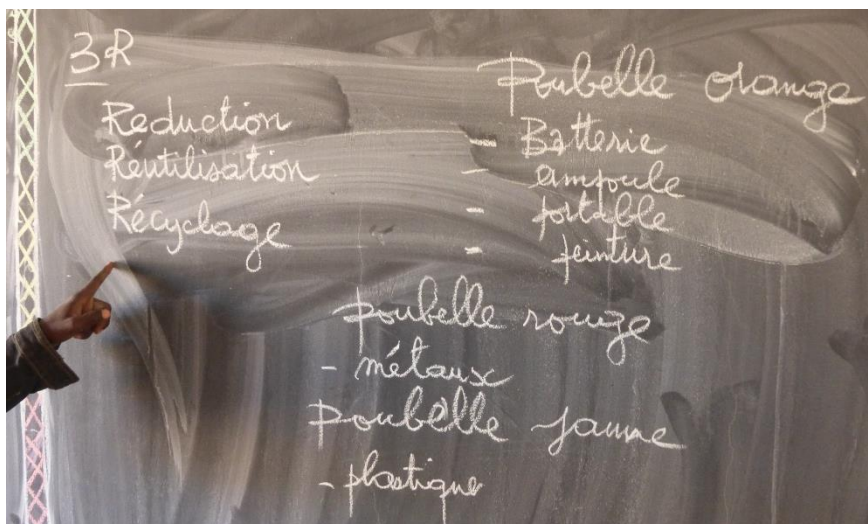 3R
Reduction
Réutilisation
Récyclage
Poubelle orange
- Batterie
- ampoule
- portable
- peinture
poubelle rouge
- métaux
poubelle jaune
- plastique